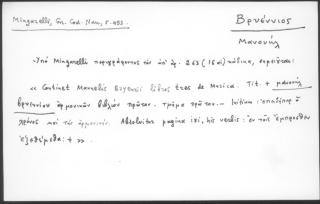 Mingarelli, Gr. Cod. Nan., s. 493.
Βρυέννιος
Μανουήλ
Ὑπὸ Mingarelli περιγράφοντος τὸν ὑπ' ἀρ. 263 (16 αἰ) κώδικα, σημειοῦται:
« Continet Manuelis Bryennii libros tres de Musica. Tit. + μανουὴλ
βρυεννίου ἁρμονικῶν βιβλίον πρῶτον. τμῆμα πρῶτον... Initium: ὁ
μένος καὶ τὰς ἁρμονικάς. Absolvitur pagina ixi, his verbis: ἐν τοῖς ἔμπροσθεν
ἐξεθέμεθα: + ».